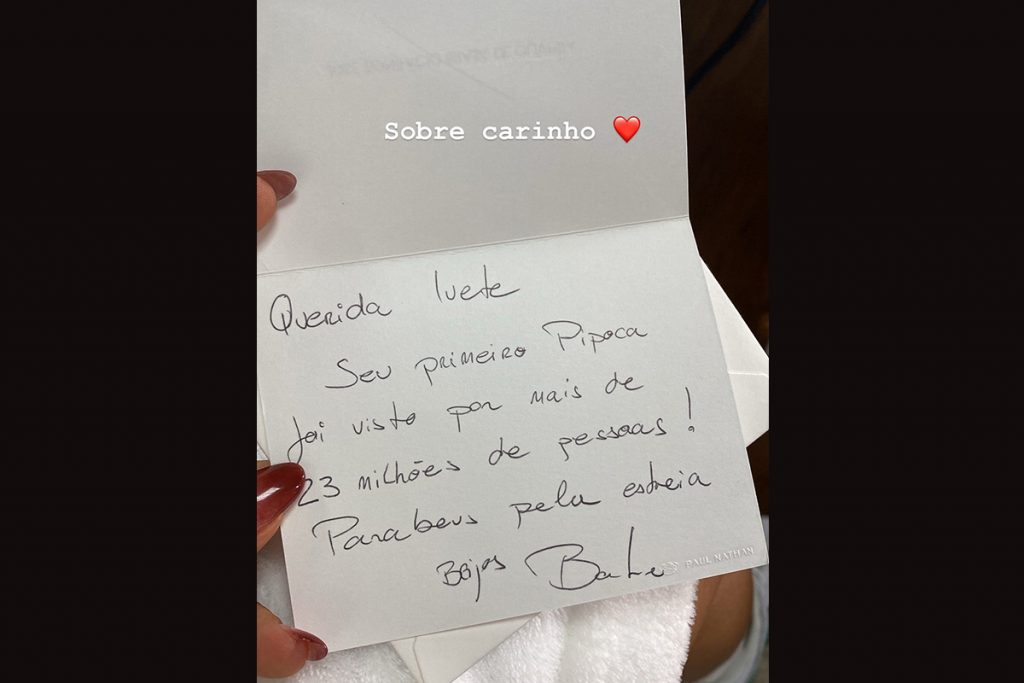 Sobre carinho ❤️
Querida Ivete
Seu primeiro Pipoca
foi visto por mais de
23 milhões de pessoas!
Parabens pela estreia
Beijos
PAUL NATHAN